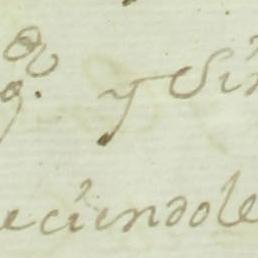 y Sin
eciendole